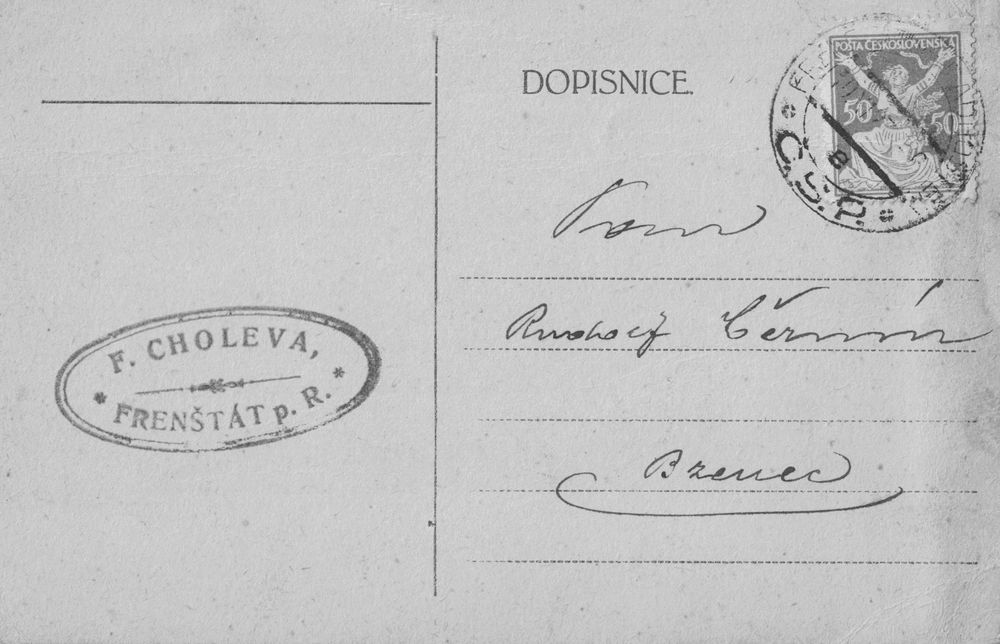 DOPISNICE.
POŠTA ČESKOSLOVENSKÁ
50 50
8
Č.S.P.
Pan
Rudolf
Bzenec
F. CHOLEVA,
FRENŠTÁT p. R.